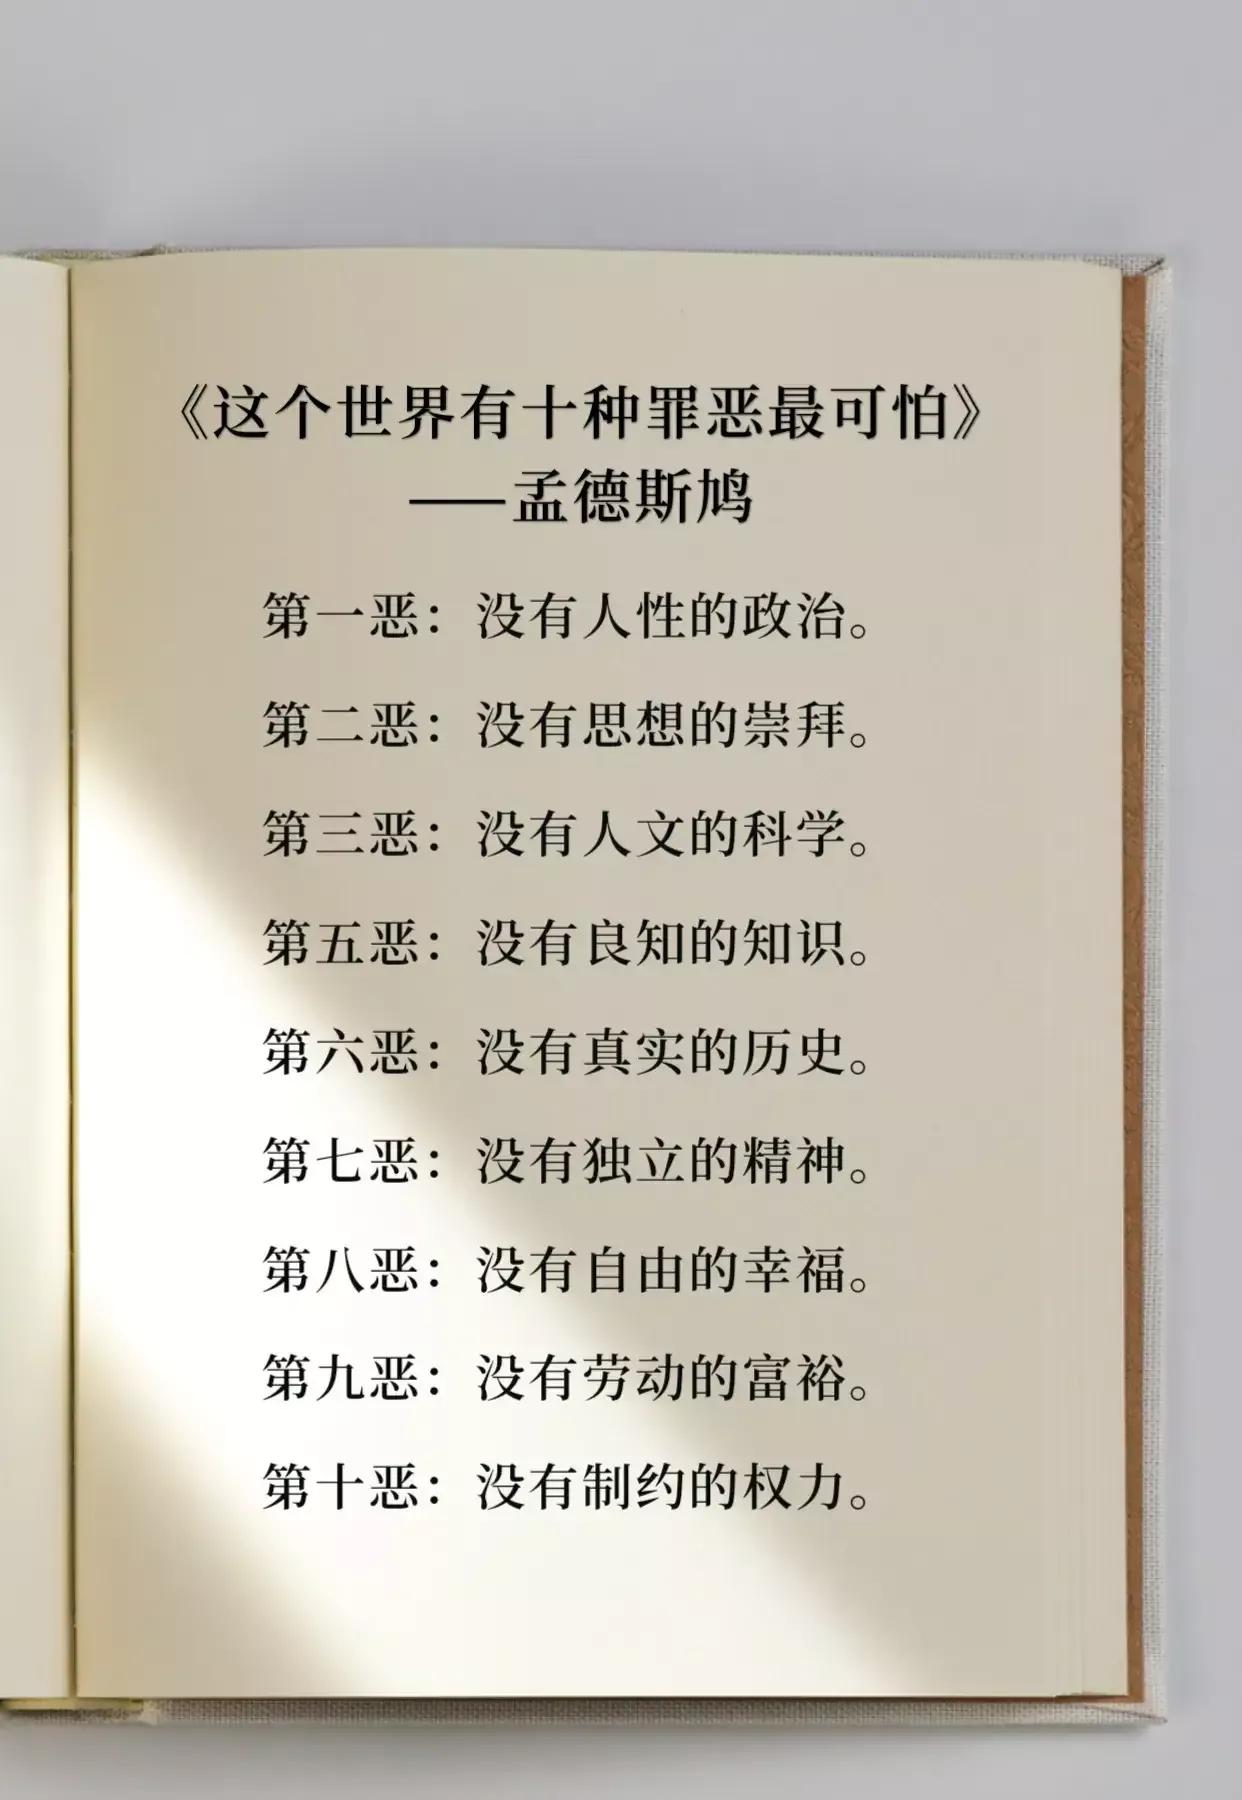 《这个世界有十种罪恶最可怕》
——孟德斯鸠
第一恶：没有人性的政治。
第二恶：没有思想的崇拜。
第三恶：没有人文的科学。
第五恶：没有良知的知识。
第六恶：没有真实的历史。
第七恶：没有独立的精神。
第八恶：没有自由的幸福。
第九恶：没有劳动的富裕。
第十恶：没有制约的权力。